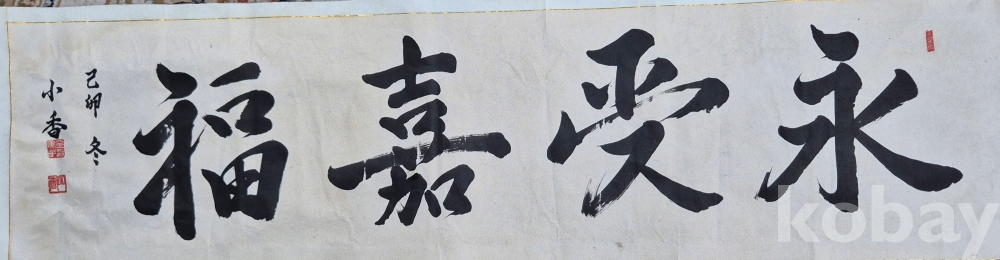 永受嘉福
己卯 冬
小香
kobay